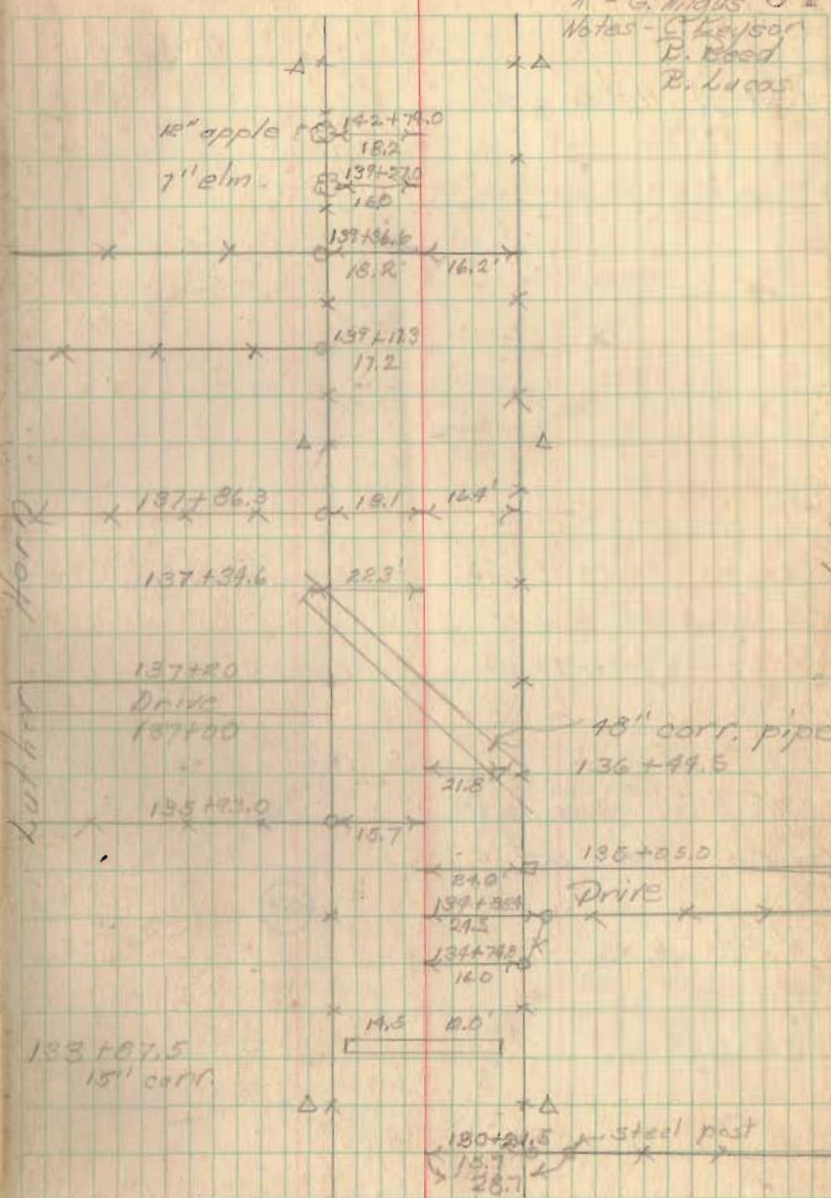 G. Angus
Notes - C. Keyson
R. Reed
R. Lucas
12" apple 142+79.0
18.2
7" elm 139+27.0
16.0
139+36.6
18.2' 16.2'
139+17.3
17.2
137+86.3 18.1 16.4'
137+34.6 22.3'
137+20
Drive
137+00
Luther Horn
48" corr. pipe
136+44.5
21.8
135+93.0
15.7
135+05.0
24.0
Drive
24.5
134+74.8
16.0
14.5 12.0'
133+87.5
15" corr.
130+21.5 steel post
15.7
28.7